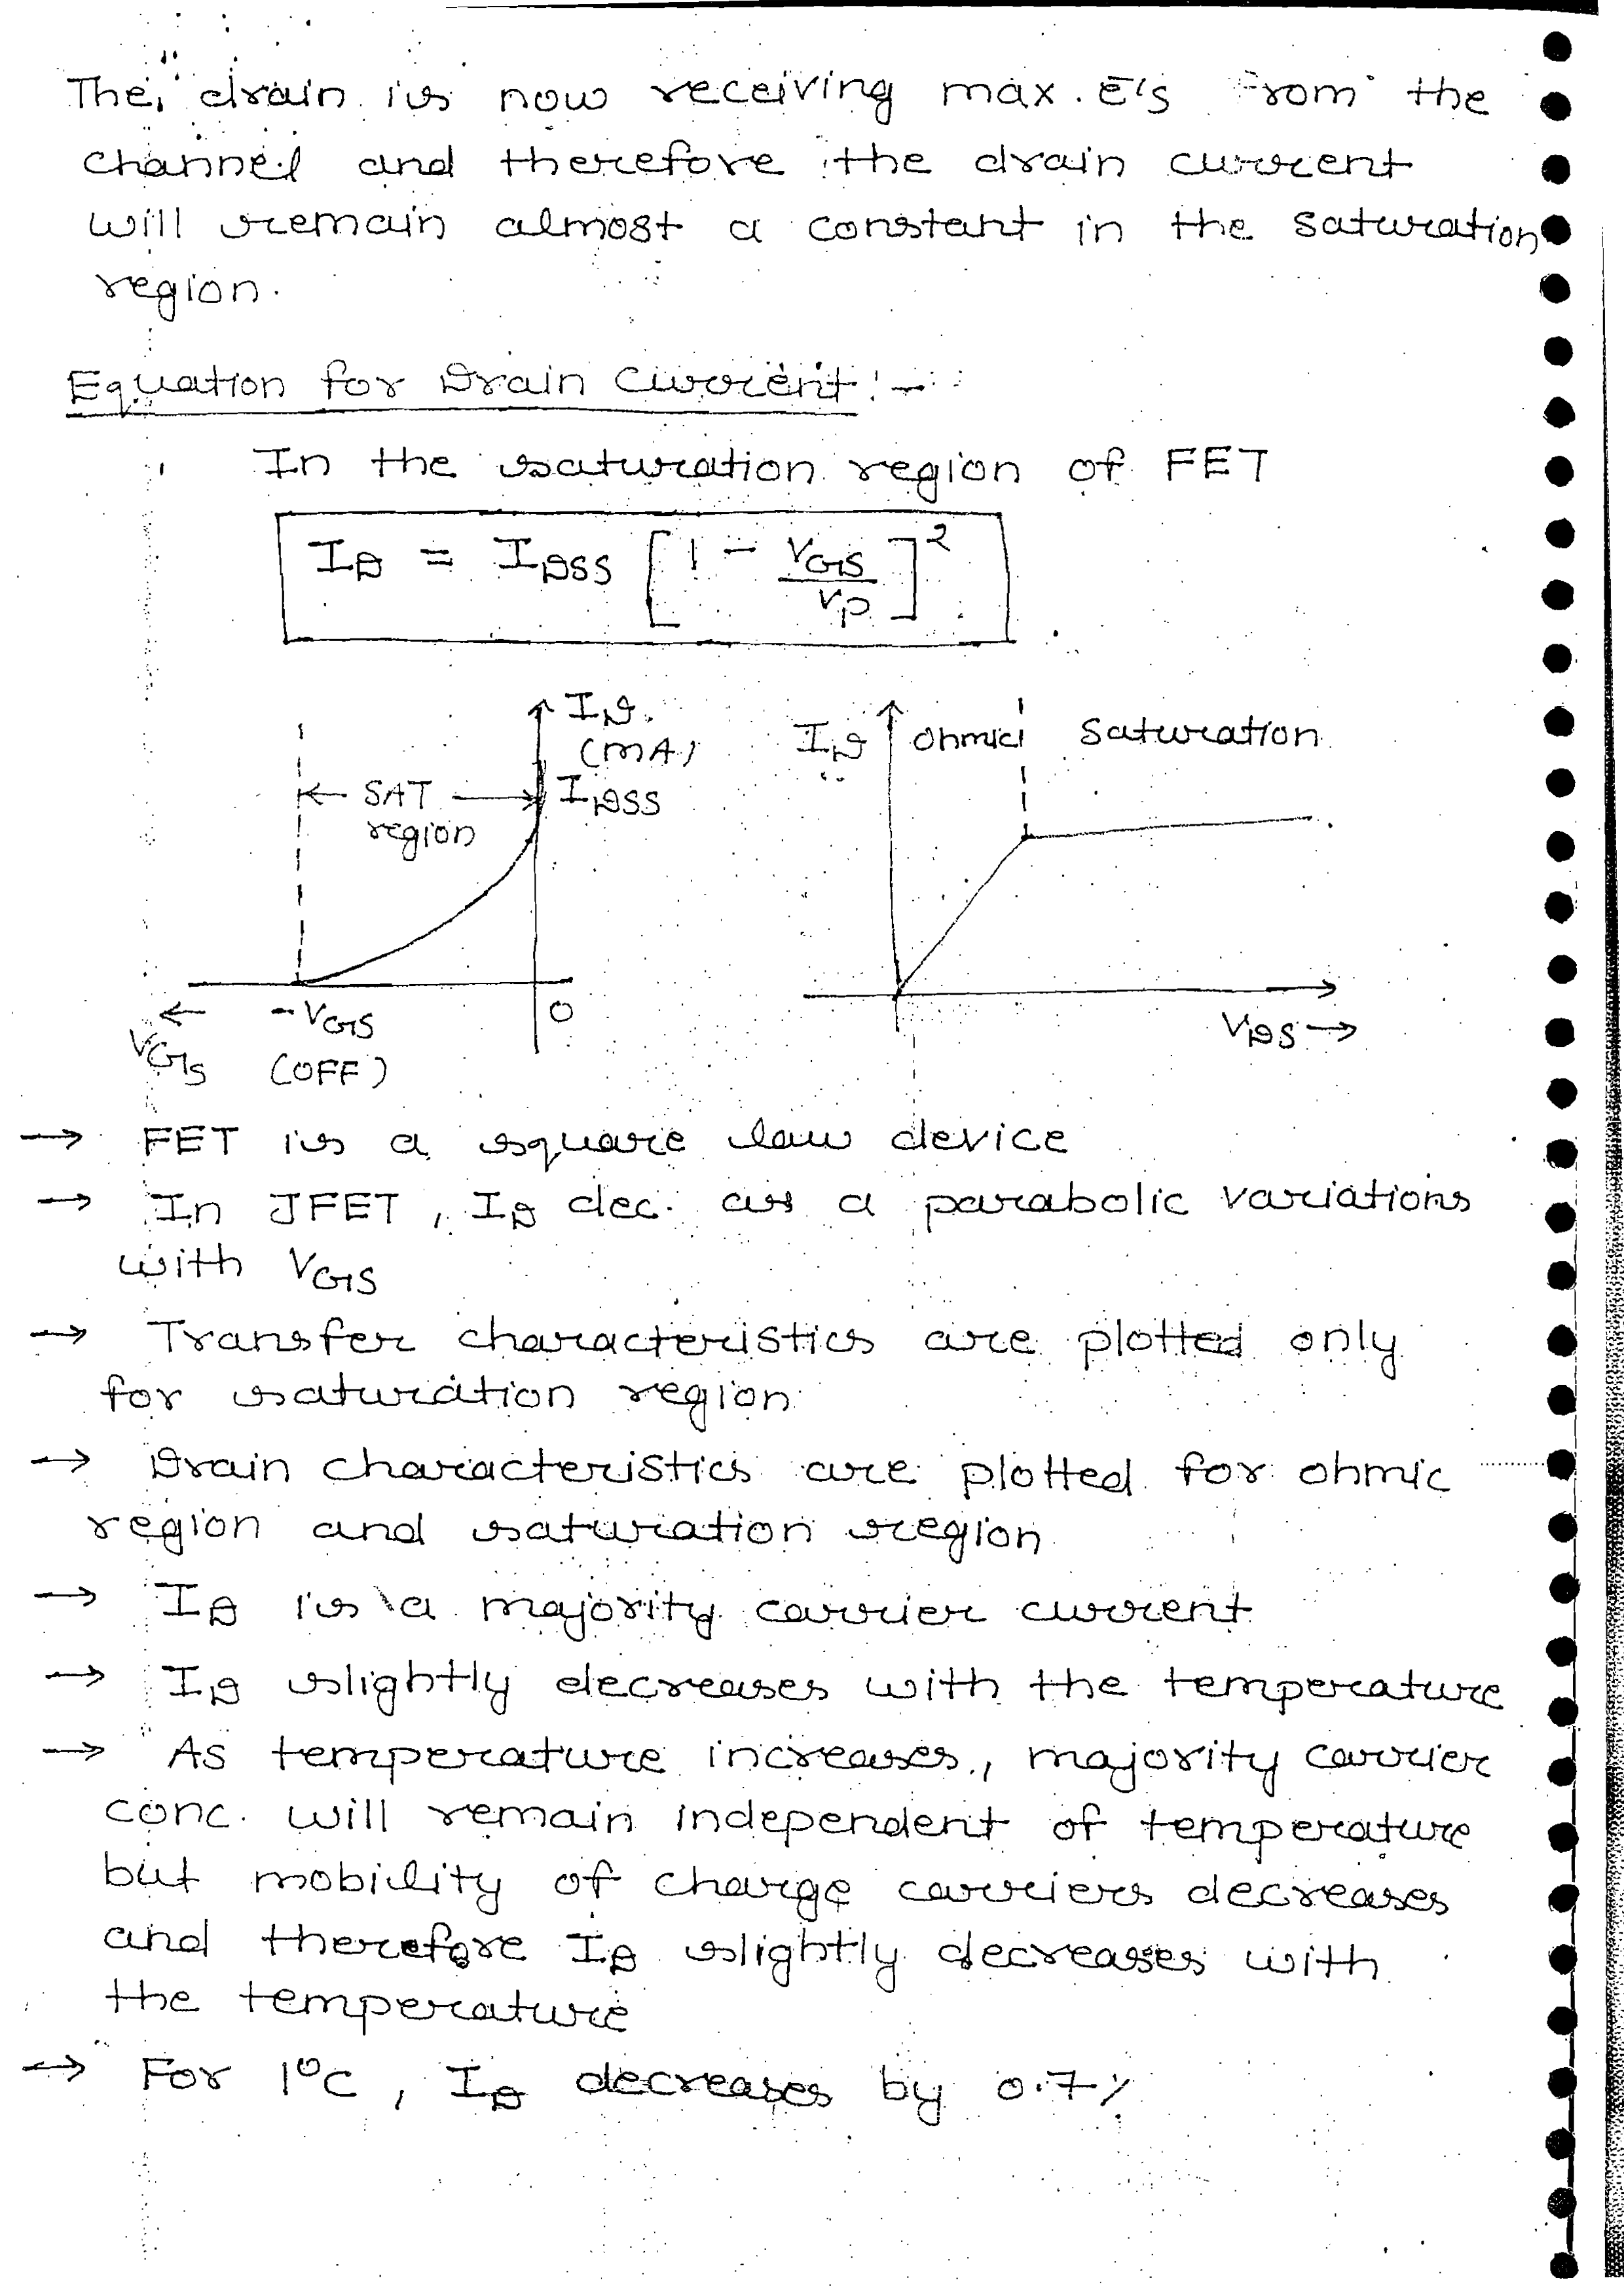 The drain is now receiving max. E's from the
channel and therefore the drain current
will remain almost a constant in the saturation
region.
Equation for Drain Current :-
In the saturation region of FET
I_D = I_DSS [1 - V_GS/V_P]^2
I_D (mA)
I_DSS
← SAT region →
← V_GS
-V_GS (OFF)
0
I_D
ohmic
saturation
V_DS →
→ FET is a square law device
→ In JFET, I_D dec. as a parabolic variations
with V_GS
→ Transfer characteristics are plotted only
for saturation region
→ Drain characteristics are plotted for ohmic
region and saturation region
→ I_D is a majority carrier current
→ I_D slightly decreases with the temperature
→ As temperature increases, majority carrier
conc. will remain independent of temperature
but mobility of charge carriers decreases
and therefore I_D slightly decreases with
the temperature
→ For 1°C, I_D decreases by 0.7%